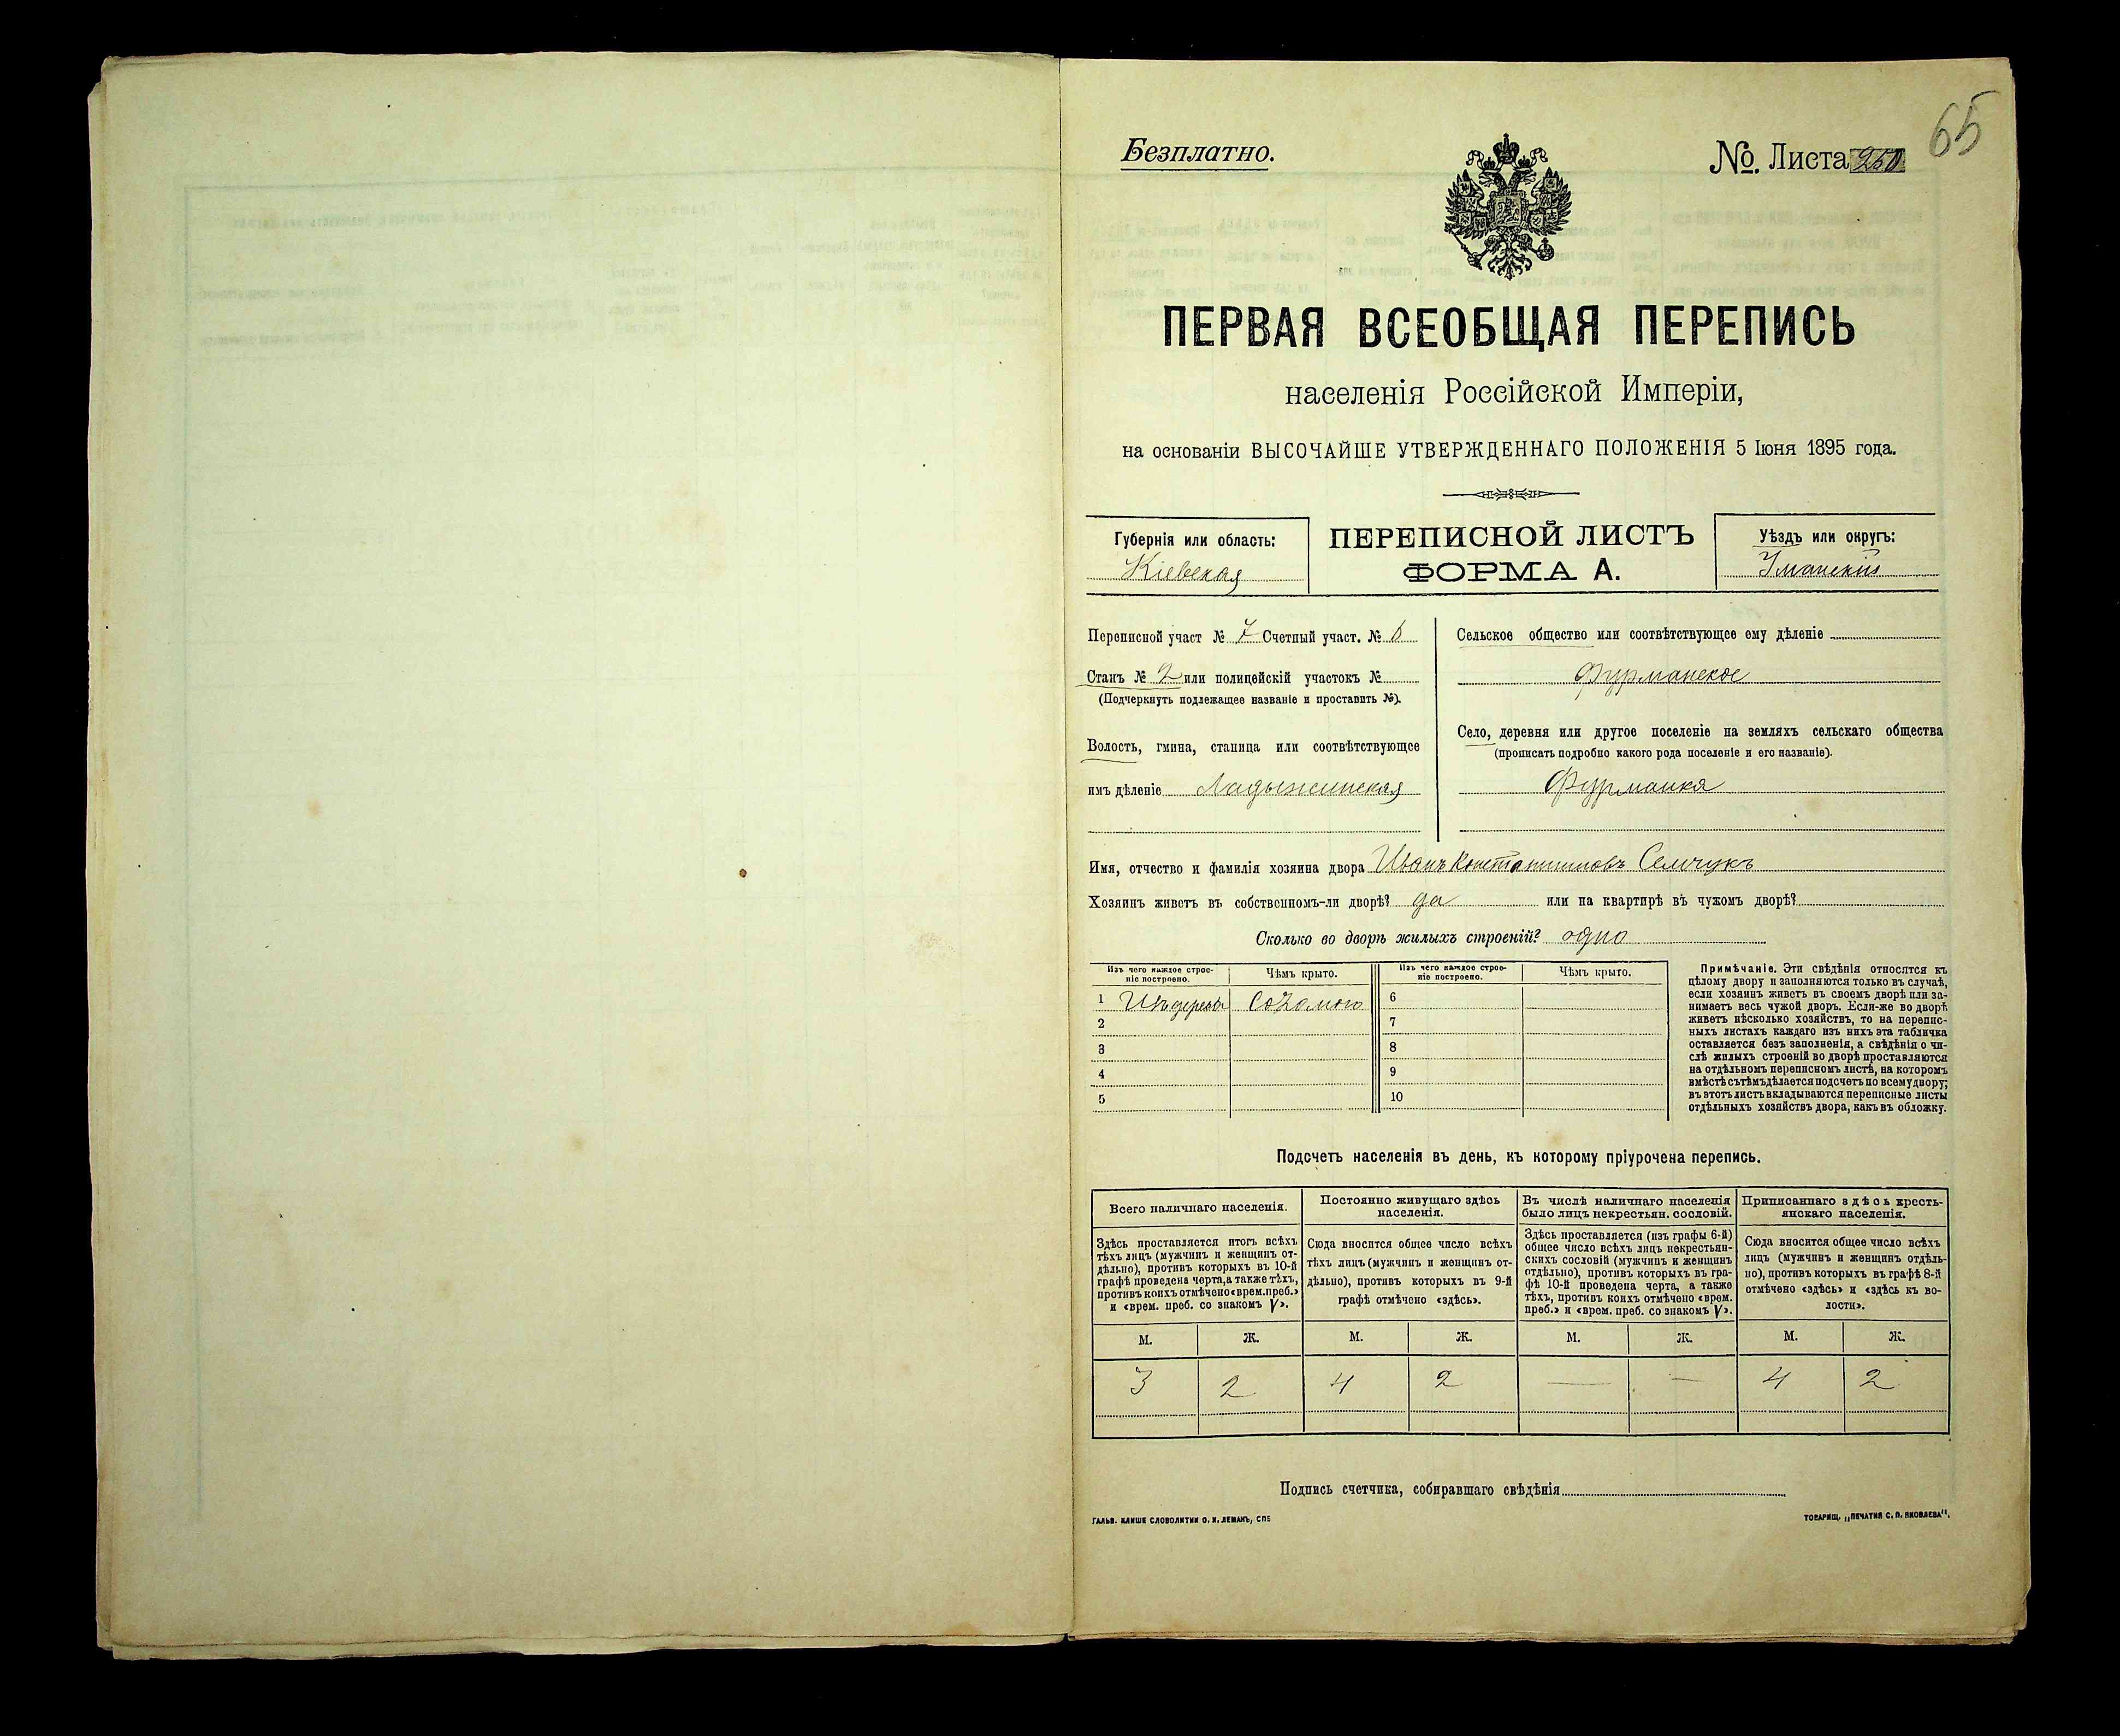 65
Безплатно.
№ Листа 250
ПЕРВАЯ ВСЕОБЩАЯ ПЕРЕПИСЬ
населенія Россійской Имперіи,
на основаніи ВЫСОЧАЙШЕ УТВЕРЖДЕННАГО ПОЛОЖЕНІЯ 5 Іюня 1895 года.
Губернія или область:
Кіевская
ПЕРЕПИСНОЙ ЛИСТЪ
ФОРМА А.
Уѣздъ или округъ:
Уманскій
Переписной участ № 7 Счетный участ. №
Станъ № 2 или полицейскій участокъ №
(Подчеркнуть подлежащее названіе и проставить №).
Волость, гмина, станица или соотвѣтствующее
имъ дѣленіе Ладыжинская
Сельское общество или соотвѣтствующее ему дѣленіе
Фурманское
Село, деревня или другое поселеніе на земляхъ сельскаго общества
(прописать подробно какого рода поселеніе и его названіе).
Фурманка
Имя, отчество и фамилія хозяина двора Иванъ Константиновъ Семчукъ
Хозяинъ живетъ въ собственномъ-ли дворѣ? да или на квартирѣ въ чужомъ дворѣ?
Сколько во дворѣ жилыхъ строеній? одно
Изъ чего каждое строе-
ніе построено.
Чѣмъ крыто.
Изъ чего каждое строе-
ніе построено.
Чѣмъ крыто.
1 Изъ дерева Соломою 6
2 7
3 8
4 9
5 10
Примѣчаніе. Эти свѣдѣнія относятся къ
цѣлому двору и заполняются только въ случаѣ,
если хозяинъ живетъ въ своемъ дворѣ или за-
нимаетъ весь чужой дворъ. Если-же во дворѣ
живетъ нѣсколько хозяйствъ, то на перепис-
ныхъ листахъ каждаго изъ нихъ эта табличка
оставляется безъ заполненія, а свѣдѣнія о чи-
слѣ жилыхъ строеній во дворѣ проставляются
на отдѣльномъ переписномъ листѣ, на которомъ
вмѣстѣ съ тѣмъ дѣлается подсчетъ по всему двору;
въ этотъ листъ вкладываются переписные листы
отдѣльныхъ хозяйствъ двора, какъ въ обложку.
Подсчетъ населенія въ день, къ которому пріурочена перепись.
Всего наличнаго населенія.
Здѣсь проставляется итогъ всѣхъ
тѣхъ лицъ (мужчинъ и женщинъ от-
дѣльно), противъ которыхъ въ 10-й
графѣ проведена черта, а также тѣхъ,
противъ коихъ отмѣчено «врем. преб.»
и «врем. преб. со знакомъ V».
Постоянно живущаго здѣсь
населенія.
Сюда вносится общее число всѣхъ
тѣхъ лицъ (мужчинъ и женщинъ от-
дѣльно), противъ которыхъ въ 9-й
графѣ отмѣчено «здѣсь».
Въ числѣ наличнаго населенія
было лицъ некрестьян. сословій.
Здѣсь проставляется (изъ графы 6-й)
общее число всѣхъ лицъ некрестьян-
скихъ сословій (мужчинъ и женщинъ
отдѣльно), противъ которыхъ въ гра-
фѣ 10-й проведена черта, а также
тѣхъ, противъ коихъ отмѣчено «врем.
преб.» и «врем. преб. со знакомъ V».
Приписаннаго здѣсь кресть-
янскаго населенія.
Сюда вносится общее число всѣхъ
лицъ (мужчинъ и женщинъ отдѣль-
но), противъ которыхъ въ графѣ 8-й
отмѣчено «здѣсь» и «здѣсь къ во-
лости».
М. Ж. М. Ж. М. Ж. М. Ж.
3 2 4 2 — — 4 2
Подпись счетчика, собиравшаго свѣдѣнія
ГАЛЬВ. КЛИШЕ СЛОВОЛИТНИ О. И. ЛЕМАНЪ, СПБ
ТОВАРИЩ. „ПЕЧАТНЯ С. П. ЯКОВЛЕВА".